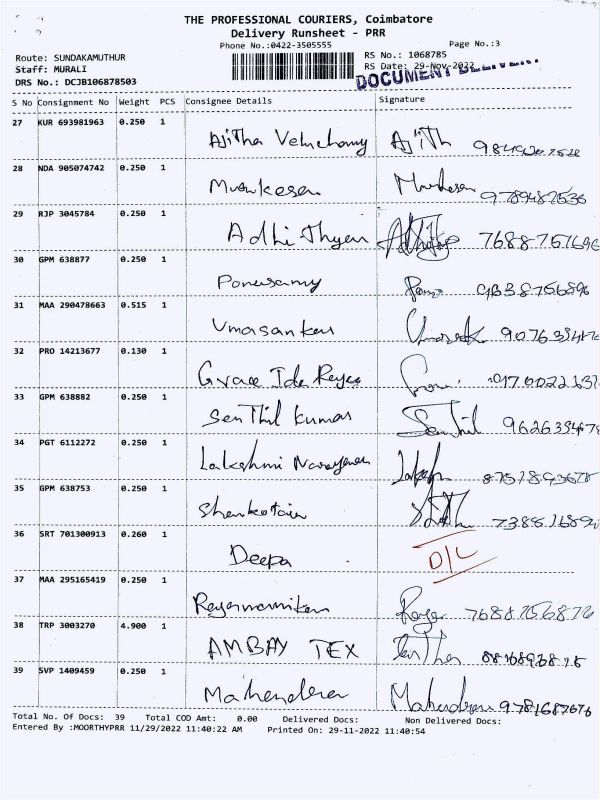 THE PROFESSIONAL COURIERS, Coimbatore
Delivery Runsheet - PRR
Phone No.:0422-3505555
Page No.:3
Route: SUNDAKAMUTHUR
RS No.: 1068785
Staff: MURALI
RS Date: 29-Nov-2022
DRS No.: DCJB106878503
DOCUMENT DELIVERY
S No Consignment No Weight PCS Consignee Details Signature
27 KUR 693981963 0.250 1
Ajitha Velnchamy Ajith
28 NDA 905074742 0.250 1
Murukesan
29 RJP 3045784 0.250 1
Adhithyan 7688757696
30 GPM 638877 0.250 1
Ponusamy
31 MAA 290478663 0.515 1
Umasankar
32 PRO 14213677 0.130 1
Grace Ida
33 GPM 638882 0.250 1
Senthil Kumar Senthil
34 PGT 6112272 0.250 1
Lakshmi Narayanan
35 GPM 638753 0.250 1
36 SRT 701300913 0.260 1
Deepa D/L
37 MAA 295165419 0.250 1
38 TRP 3003270 4.900 1
AMBAY TEX
39 SVP 1409459 0.250 1
Mahendran Mahendran
Total No. Of Docs: 39 Total COD Amt: 0.00 Delivered Docs: Non Delivered Docs:
Entered By :MOORTHYPRR 11/29/2022 11:40:22 AM Printed On: 29-11-2022 11:40:54